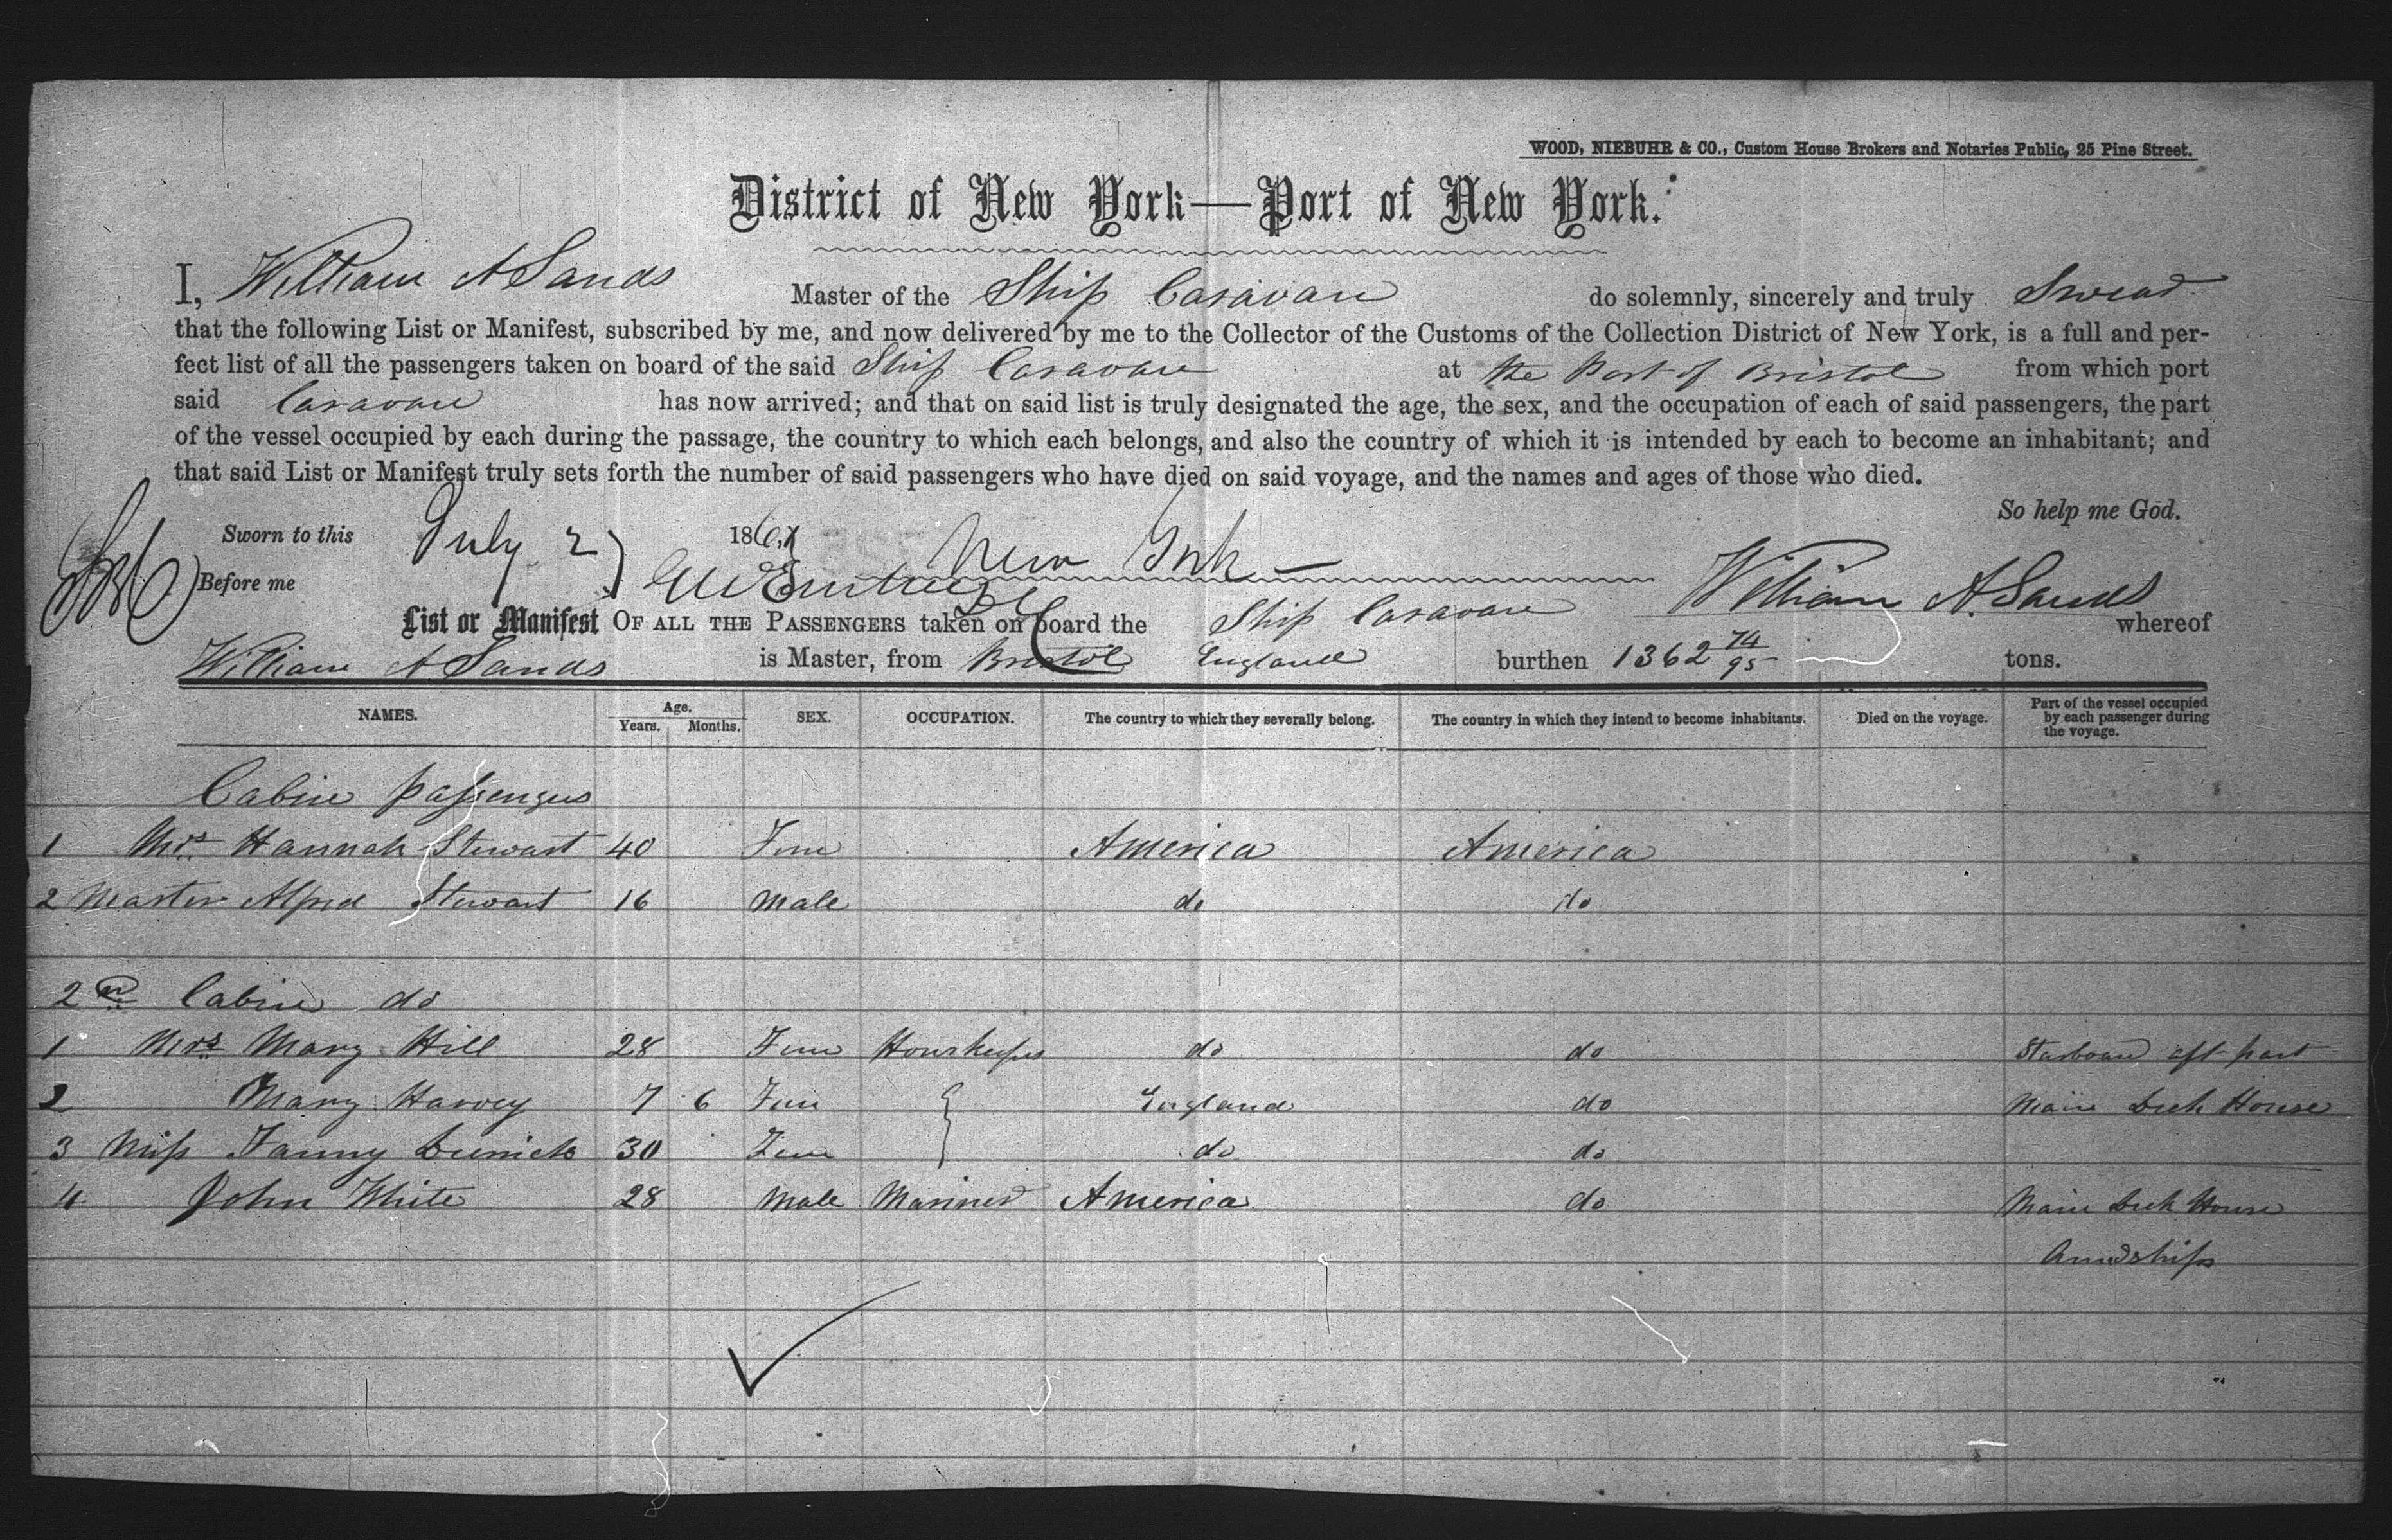 WOOD, NIEBUHR & CO., Custom House Brokers and Notaries Public, 25 Pine Street.
District of New York—Port of New York.
I, William A Sands Master of the Ship Caravan do solemnly, sincerely and truly Swear
that the following List or Manifest, subscribed by me, and now delivered by me to the Collector of the Customs of the Collection District of New York, is a full and per-
fect list of all the passengers taken on board of the said Ship Caravan at the Port of Bristol from which port
said Caravan has now arrived; and that on said list is truly designated the age, the sex, and the occupation of each of said passengers, the part
of the vessel occupied by each during the passage, the country to which each belongs, and also the country of which it is intended by each to become an inhabitant; and
that said List or Manifest truly sets forth the number of said passengers who have died on said voyage, and the names and ages of those who died.
So help me God.
Sworn to this July 2 186 New York
Before me William A. Sands
List or Manifest OF ALL THE PASSENGERS taken on board the Ship Caravan whereof
William A Sands is Master, from Bristol England burthen 1362 74/95 tons.
NAMES. Age. Years. Months. SEX. OCCUPATION. The country to which they severally belong. The country in which they intend to become inhabitants. Died on the voyage. Part of the vessel occupied by each passenger during the voyage.
Cabin passengers
1 Mrs. Hannah Stewart 40 Fem America America
2 Master Alfred Stewart 16 Male do do
2nd Cabin do
1 Mrs. Mary Hill 28 Fem do do Starboard aft part
2 Mary Harvey 7 6 Fem England do Main Deck House
3 Miss Fanny 30 Fem do do
4 John White 28 Male Mariner America do Main Deck House
Amidships